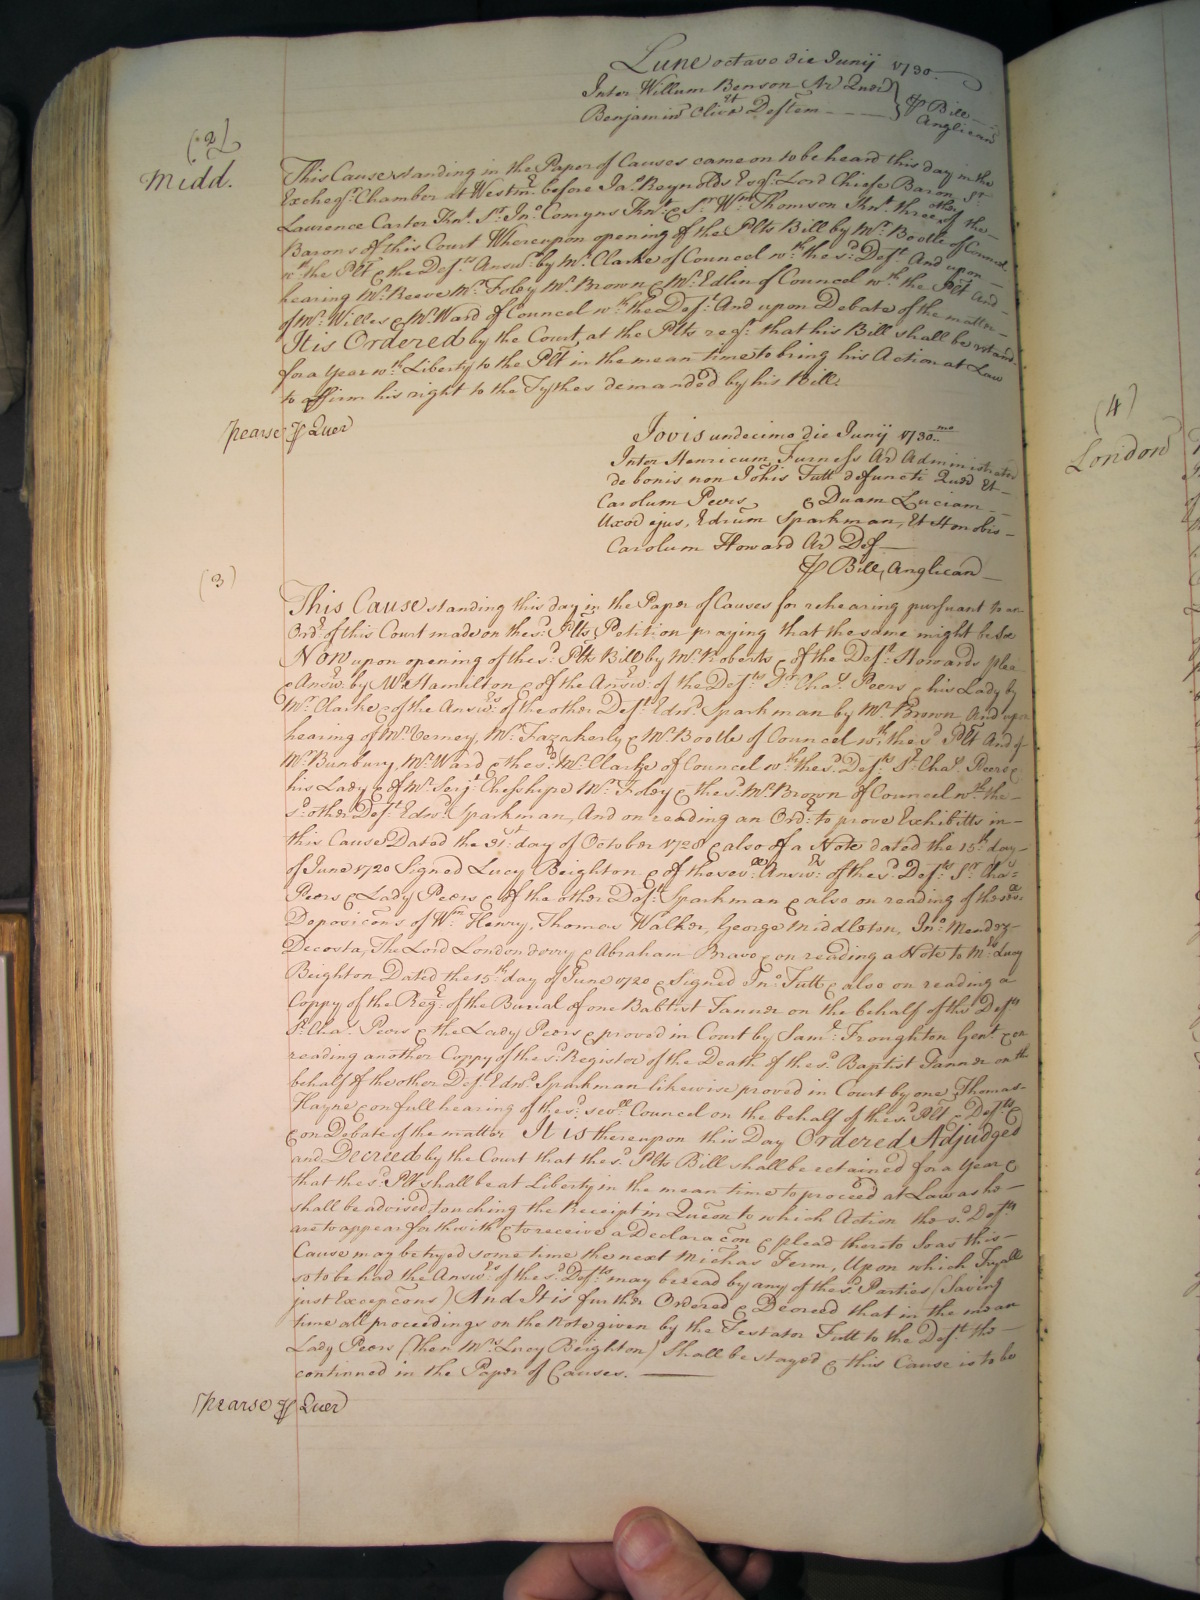 Lune octavo die Junij 1730.
Inter Willum Benson Ar Quer
Et
Benjamin Clive Deftem
ꝑ Bill
Anglican
(2)
Midd.
This Cause standing in the Paper of Causes came on to be heard this day in the
Excheqr. Chamber at Westmr. before Jas. Reynolds Esqr. Lord Chiefe Baron Sr.
Lawrence Carter Knt. Sr. Jno. Comyns Knt. & Sr. Wm. Thomson Knt. three other of the
Barons of this Court Whereupon opening of the Plts Bill by Mr. Bootle of Councel
wth. the Plt & the Defts. Answr. by Mr. Clarke of Councel wth. the sd. Deft. And upon
hearing Mr. Reeve Mr. Foley Mr. Brown & Mr. Edlin of Councel wth. the Plt And
of Mr. Willes & Mr. Ward of Councel wth. the Deft. And upon Debate of the matter
It is Ordered by the Court, at the Plts reqt. that his Bill shall be retaind
for a Year wth. Liberty to the Plt in the mean time to bring his Action at Law
to affirm his right to the Tythes demanded by his Bill.
Pearse ꝑ Quer
Jovis undecimo die Junij 1730mo
Inter Henricum Furness Ar Administrator
de bonis non Johis Tutt defuncti Quer Et
Carolum Peers & Duam Luciam
Uxor ejus, Edrum Sparkman, Et Honobis
Carolum Howard Ar Def
ꝑ Bill, Anglican
(3)
This Cause standing this day in the Paper of Causes for rehearing pursuant to an
Ordr. of this Court made on the sd. Plts Petition praying that the same might be so
Now upon opening of the sd. Plts Bill by Mr. Roberts & of the Deft. Howards plea
& Answr. by Mr. Hamilton & of the Answr. of the Defts Sr. Chas. Peers & his Lady by
Mr. Clarke & of the Answr. of the other Deft. Edwd. Sparkman by Mr. Brown And upon
hearing of Mr. Verney, Mr. Fazakerly & Mr. Bootle of Councel wth. the sd Plt And of
Mr. Bunbury, Mr. Ward & the sd. Mr. Clarke of Councel wth. the sd. Defts Sr. Chas. Peers &
his Lady & of Mr. Serjt. Chesshyre Mr. Foley & the sd. Mr. Brown of Councel wth. the
sd. other Deft. Edwd. Sparkman, And on reading an Ordr. to prove Exhibitts in
this Cause Dated the 31st. day of October 1728 & also of a Note dated the 15th. day
of June 1720 Signed Lucy Beighton & of the sevll. Answrs. of the sd. Defts Sr. Chas.
Peers & Lady Peers & of the other Deft. Sparkman & also on reading of the sevll
Deposicons of Wm. Henry, Thomas Walker, George Middleton, Jno. Mendez
Decosta, The Lord London derry & Abraham Bravo & on reading a Note to Mrs. Lucy
Beighton Dated the 15th. day of June 1720 & Signed Jno. Tutt & also on reading a
Coppy of the Regr. of the Burial of one Babtist Tanner on the behalf of the Defts
Sr. Chas. Peers & the Lady Peers & proved in Court by Saml. Troughton Gent. & on
reading another Coppy of the sd. Register of the Death of the sd. Baptist Tanner on the
behalf of the other Deft. Edwd. Sparkman likewise proved in Court by one Thomas
Hayne & on full hearing of the sd. sevll. Councel on the behalf of the sd. Plt & Defts &
& on Debate of the matter It is thereupon this Day Ordered Adjudged
and Decreed by the Court that the sd. Plts Bill shall be retained for a Year &
that the sd. Plt shall be at Liberty in the mean time to proceed at Law as he
shall be advised touching the Receipt in Queon to which Action the sd. Defts
are to appear forthwith & to receive a Declaracon & plead thereto so as this
Cause may be tryed some time the next Michas Term, Upon which Tryall
so to be had the Answrs. of the sd. Defts may be read by any of the sd. Parties (Saving
just Excepcons) And It is further Ordered & Decreed that in the mean
time all proceedings on the Note given by the Testator Tutt to the Deft. the
Lady Peers (then Mrs. Lucy Beighton) Shall be stayed & this Cause is to be
continued in the Paper of Causes.
Pearse ꝑ Quer
(4)
London